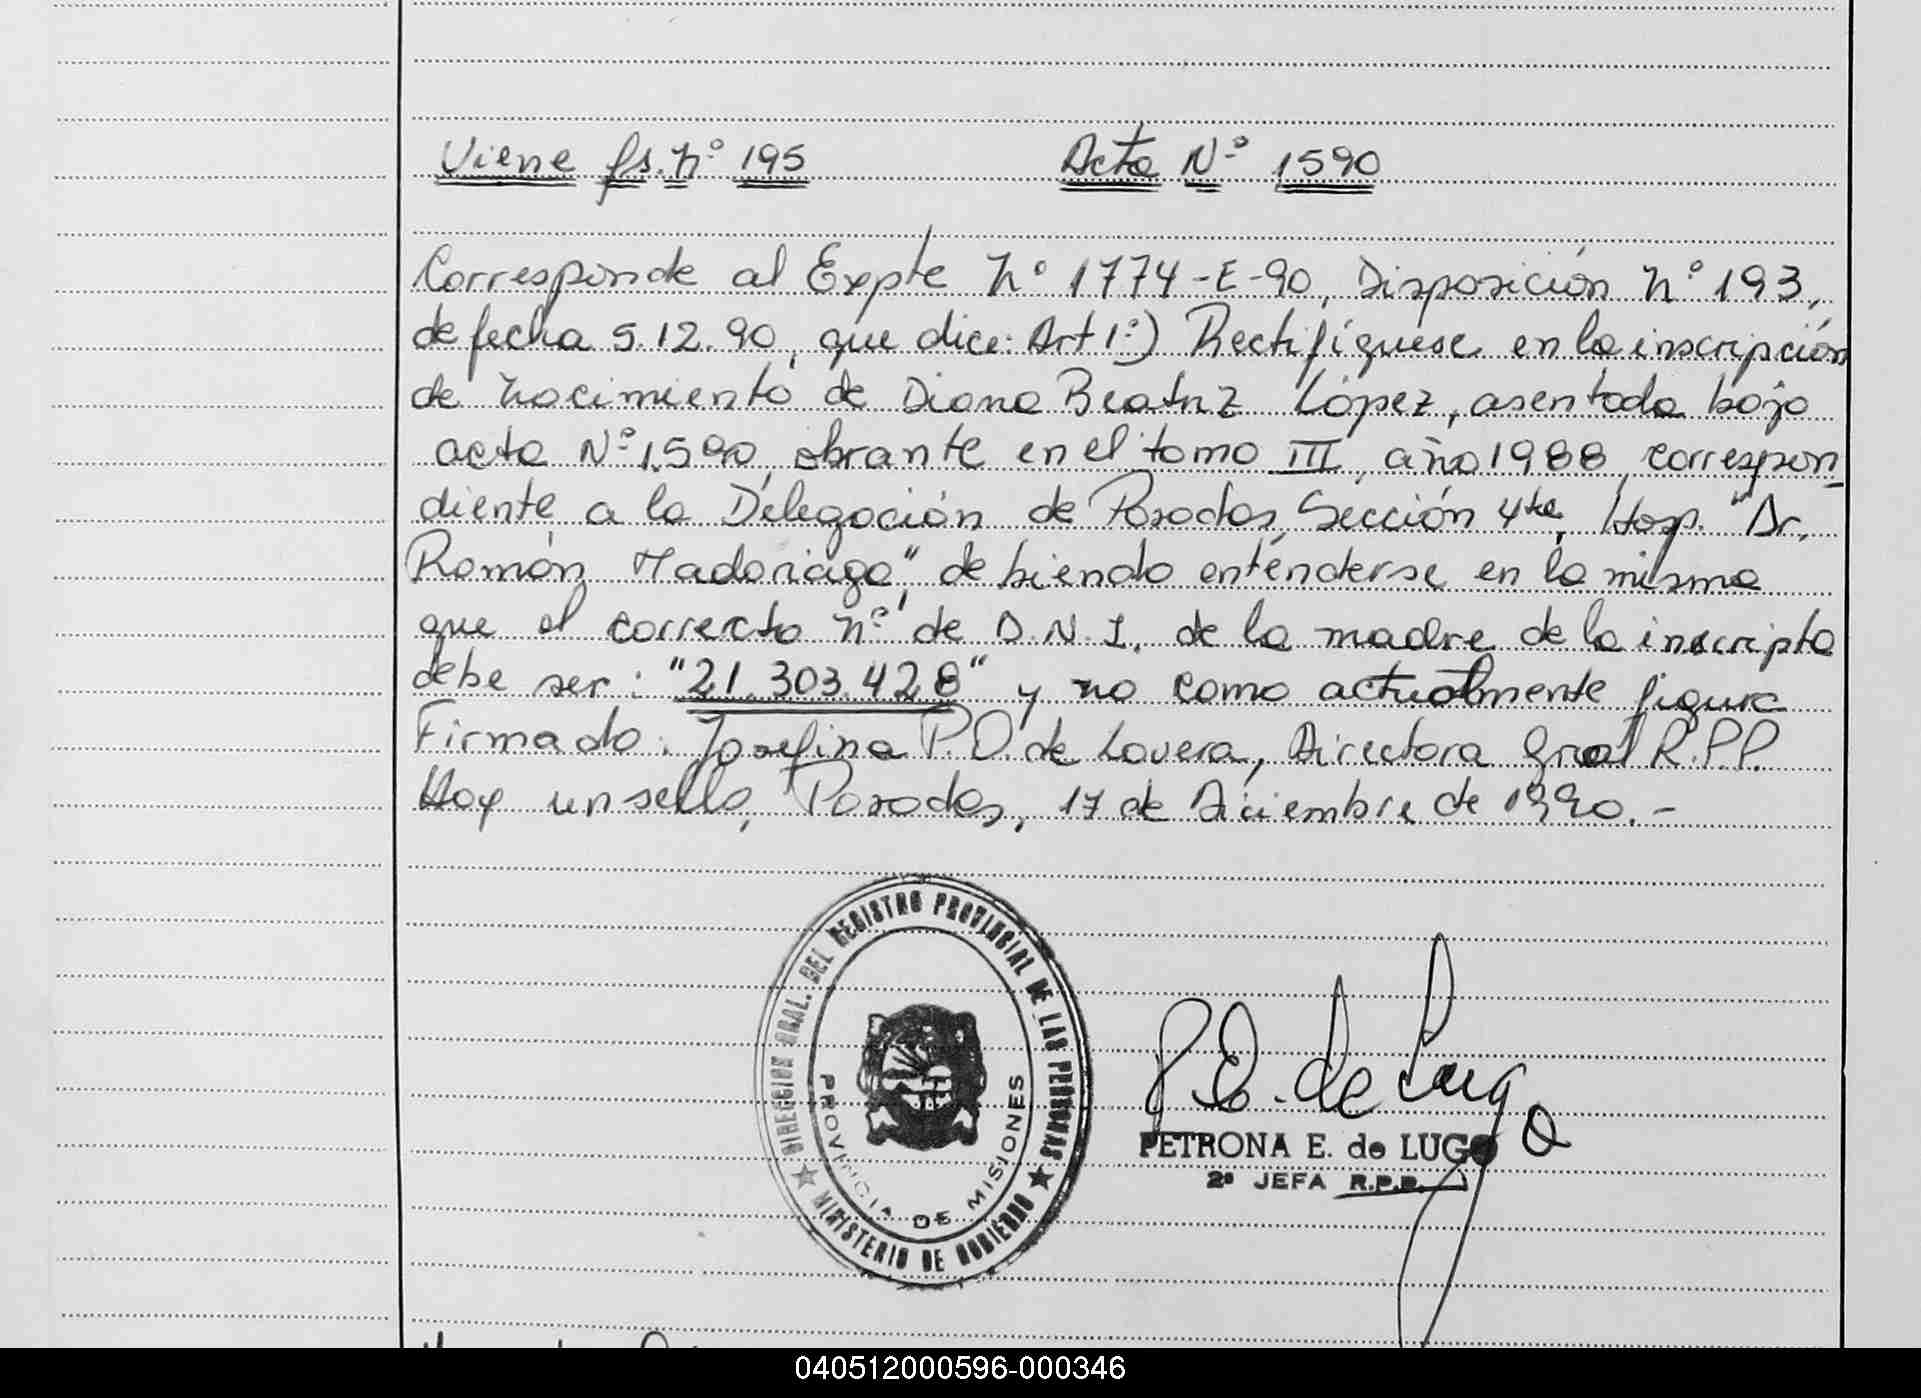 Viene fs. Nº 195 Acta Nº 1590
Corresponde al Expte Nº 1774-E-90, Disposición Nº 193,
de fecha 5.12.90, que dice: Art 1º) Rectifíquese en la inscripción
de nacimiento de Diana Beatriz López, asentada bajo
acta Nº 1.590, obrante en el tomo III, año 1988, correspon
diente a la Delegación de Posadas, Sección 4ta, Hosp. "Dr.
Román Madariaga", debiendo entenderse en la misma
que el correcto nº de D.N.I. de la madre de la inscripta
debe ser: "21.303.428" y no como actualmente figura
Firmado: Josefina P.O. de Lovera, Directora Gral R.P.P.
Hay un sello, Posadas, 17 de Diciembre de 1990.-
DIRECCION GRAL. DEL REGISTRO PROVINCIAL DE LAS PERSONAS
PROVINCIA DE MISIONES
MINISTERIO DE GOBIERNO
P.E. de Lugo
PETRONA E. de LUGO
2ª JEFA R.P.P.
040512000596-000346